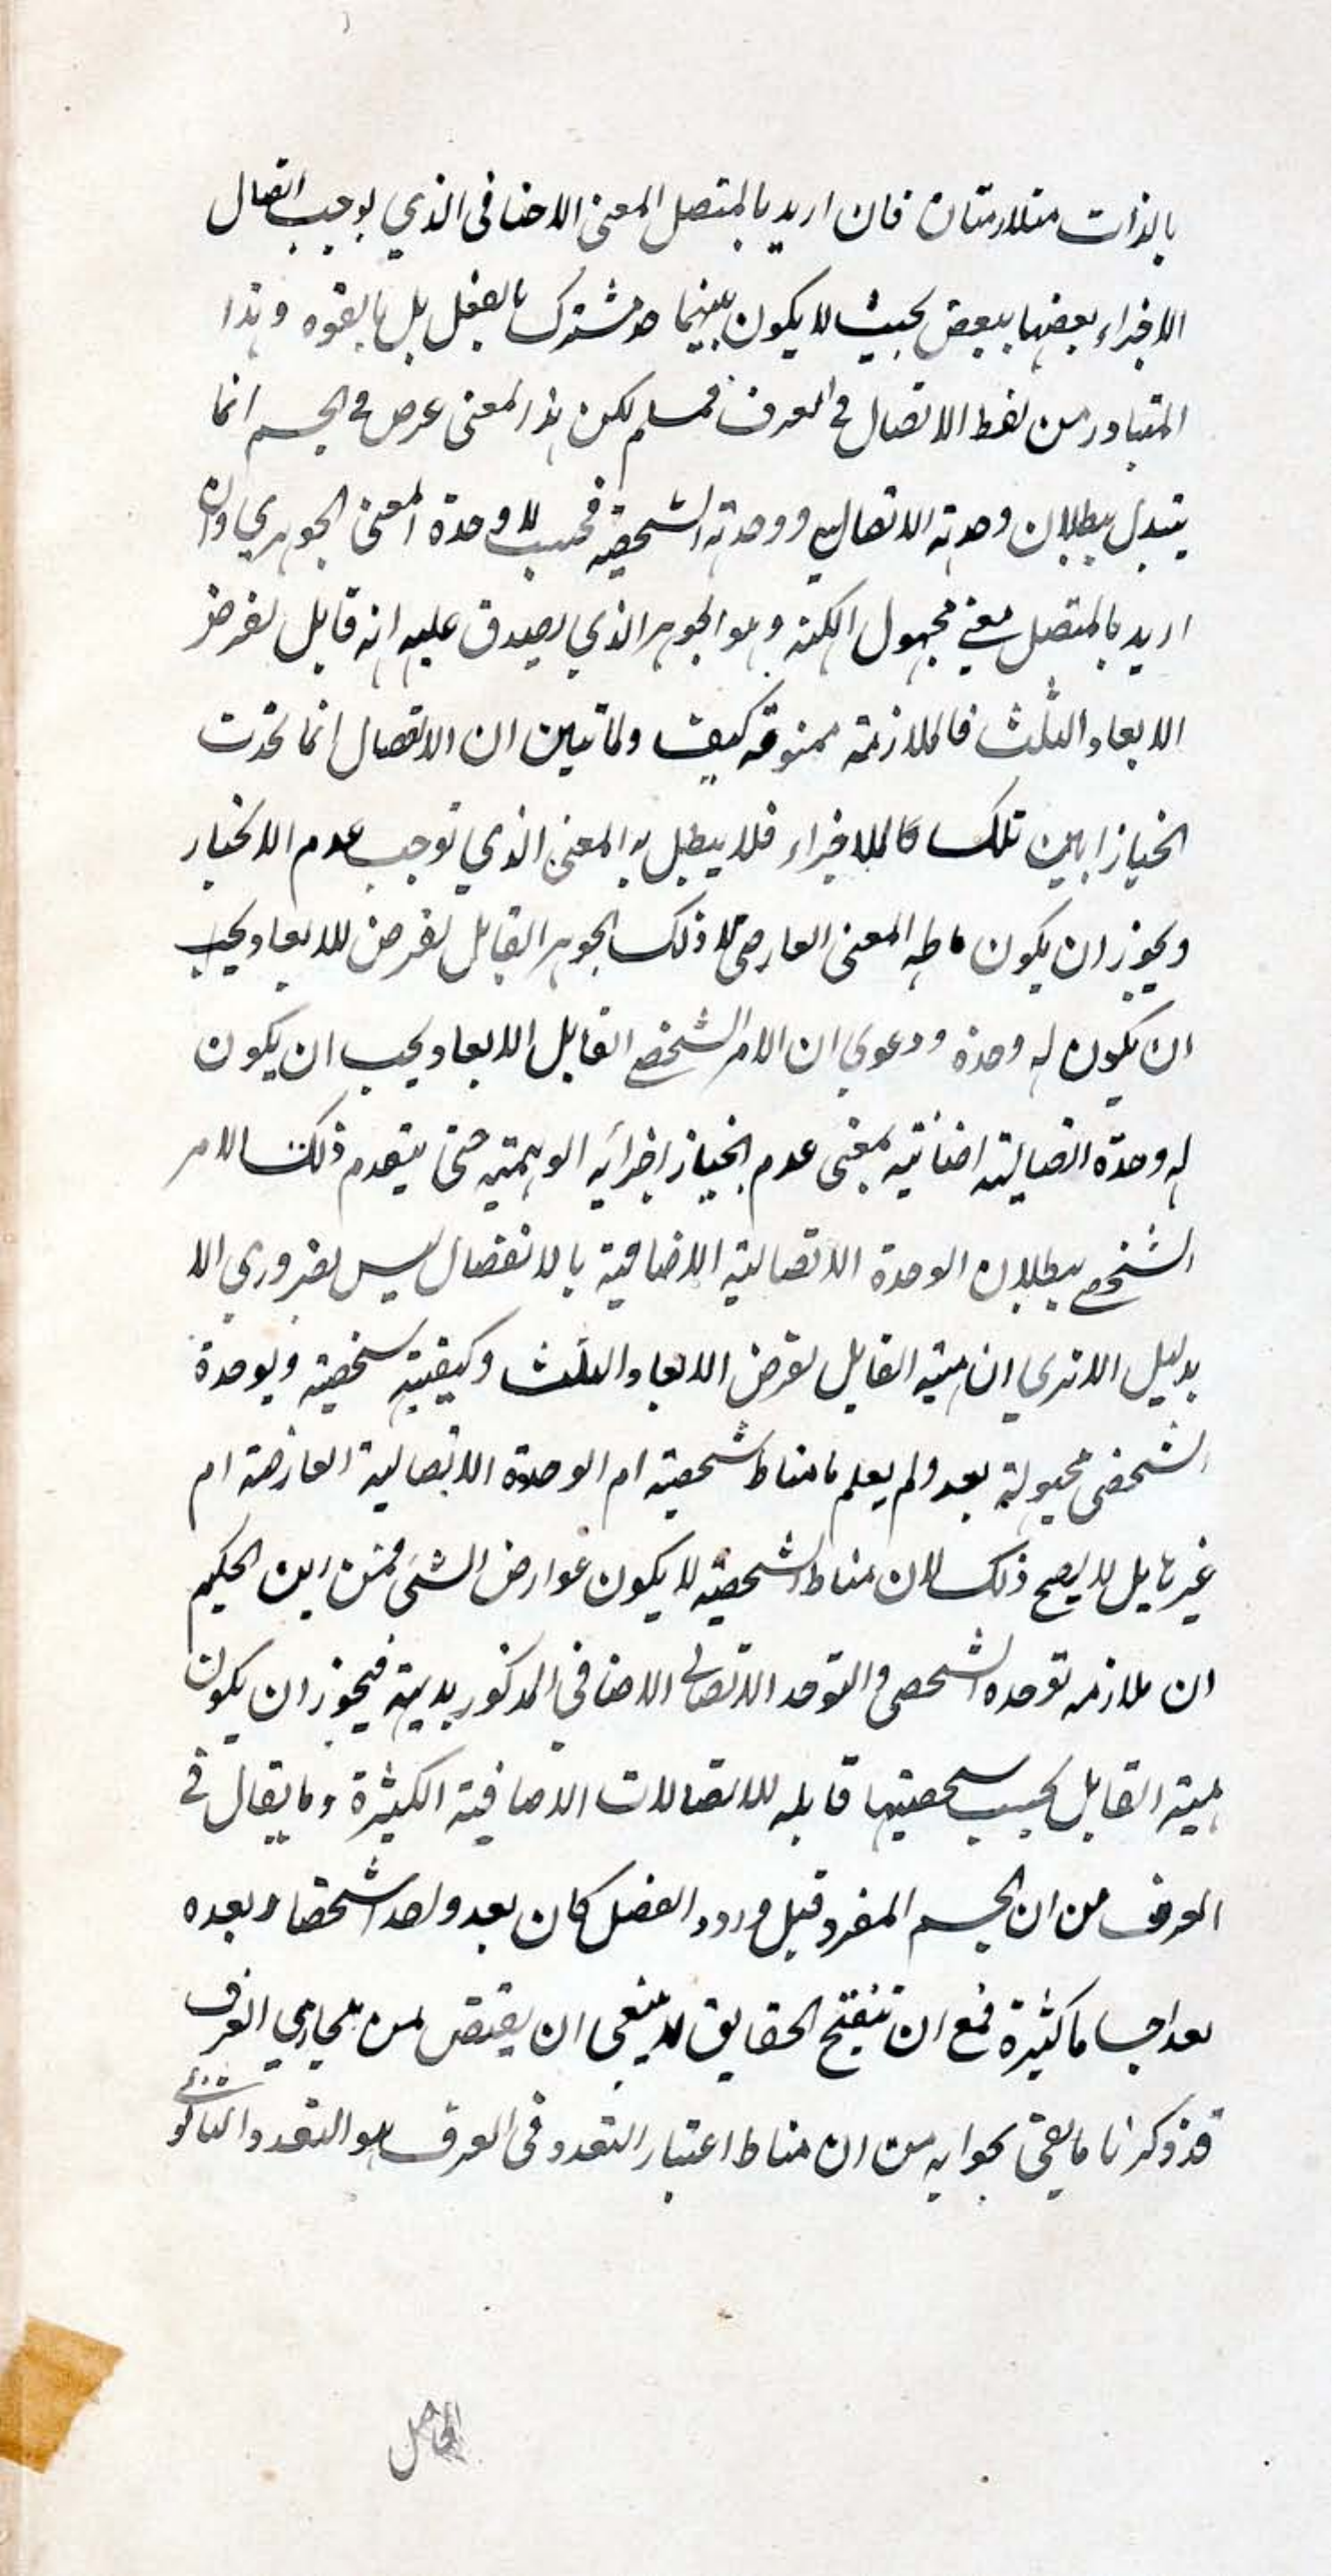 بالذات متلازمتان فان اريد بالمتصل المعنى الاضافى الذي يوجب اتصال
الاجزاء بعضها ببعض بحيث لا يكون بينهما حد مشترك بالفعل بل بالقوه وهذا
المتبادر من لفظ الاتصال فى العرف فمسلم لكن هذا المعنى عرض فى الجسم انما
يتبدل ببطلان وحدته الاتصالي ووحدته الشخصيه فحسب لا وحدة المعنى الجوهري وان
اريد بالمتصل معنى مجهول الكنه وهو الجوهر الذي يصدق عليه انه قابل لفرض
الابعاد الثلث فالملازمة ممنوعة كيف ولما تبين ان الانفصال انما تحدث
انحيازا بين تلك الاجزاء فلا يبطل به المعنى الذي توجب عدم الانحياز
ويجوز ان يكون المعنى العارض لا ذلك الجوهر القابل لفرض للابعاد ويجب
ان يكون له وحدة ودعوي ان الامر الشخصي القابل الابعاد يجب ان يكون
له وحدة اتصاليته اضافيته بمعنى عدم انحياز اجزائه الوهميته حتى ينعدم ذلك الامر
الشخصي ببطلان الوحدة الاتصالية الاضافية بالانفصال ليس بضروري الا
بدليل الا تري ان هيئته القابل لفرض الابعاد الثلث وكيفيته شخصيته وبوحدة
الشخصى مجهولة بعد ولم يعلم ما مناط شخصيته ام الوحدة الاتصالية العارضة ام
غيرها بل لا يصح ذلك لان مناط الشخصيته لا يكون عوارض الشئ فمن اين الحكم
ان ملازمه توحده الشخصى والتوحد الاتصالى الاضافي المذكور بديهية فيجوز ان يكون
هيئة القابل بحسب شخصيتها قابله للاتصالات الاضافية الكثيرة وما يقال فى
العرف من ان الجسم المفرد قبل ورود الفصل كان يعد واحد اشخصا وبعده
يعد اجساما كثيرة فمع ان تنقيح الحقايق لا ينبغى ان يقتنص من مجاري العرف
قد ذكرنا ما يفى بجوابه من ان مناط اعتبار التعدد فى العرف هو التعدد الثانوى
الحاصل